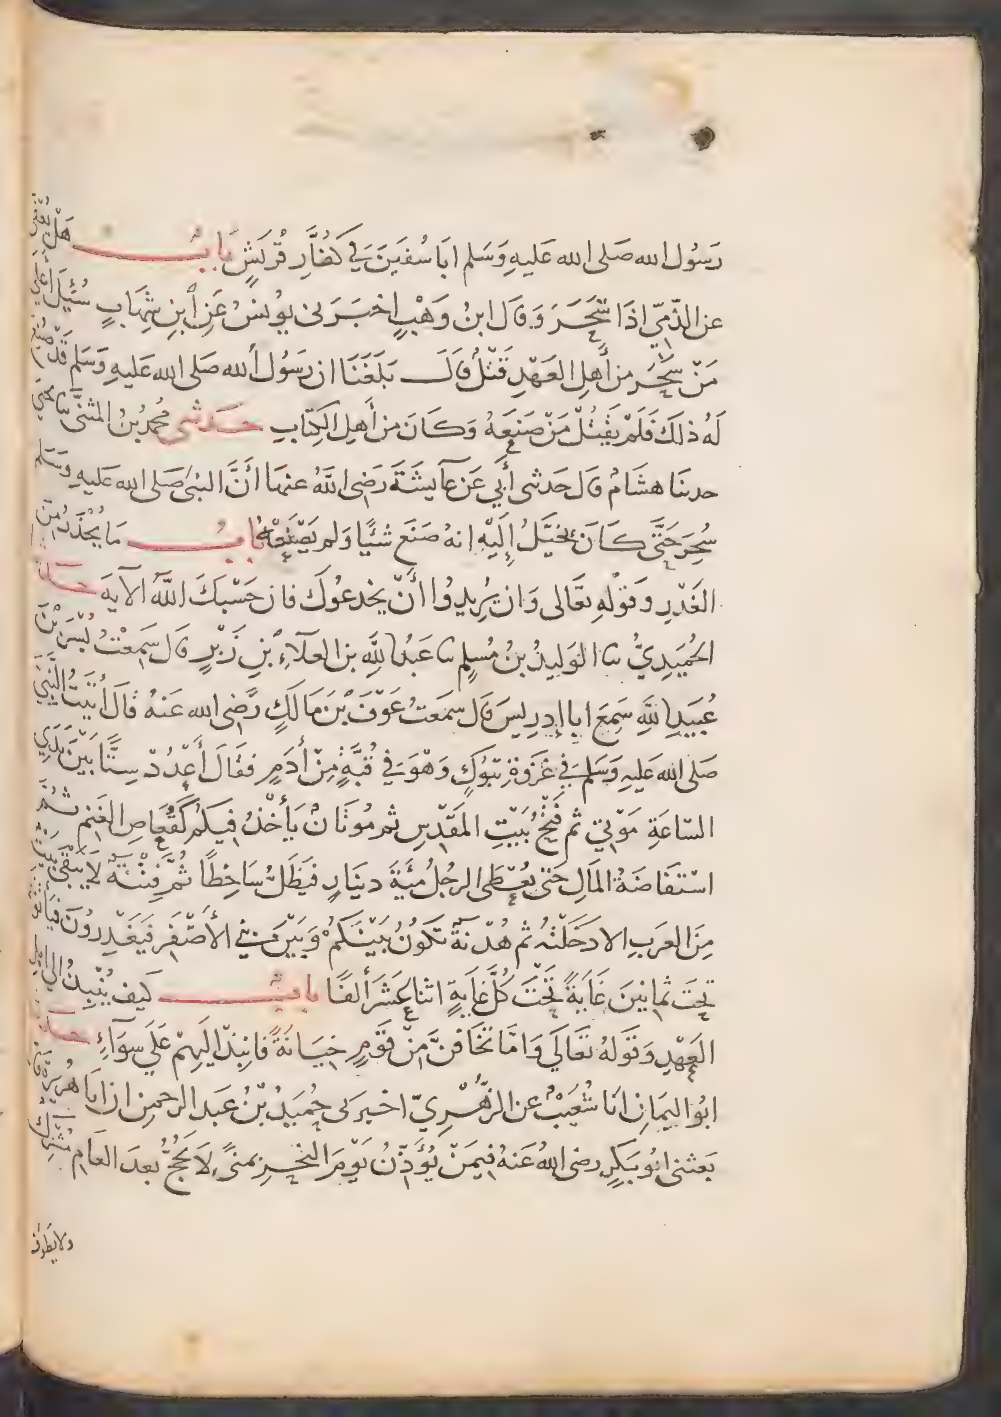 رَسُول الله صَلى الله عَليهِ وَسَلم ابَا سُفيَنَ فِي كُفَّارِ قُرَيشٍ بَابُ هَلْ يُعْفَى
عن الذِّمِّيّ اذَا سَحَرَ وَقال ابنُ وَهْبٍ اخبَرَنى يونسُ عَنِ ابْنِ شِهَابٍ سُئِلَ أعَلَى
مَنْ سَحَرَ من أَهلِ العَهْدِ قَتْلٌ قال بَلَغَنَا ان رَسُول الله صَلى الله عَليهِ وَسَلم قَدْ صُنِعَ
لَهُ ذلكَ فَلَمْ يَقتُلْ مَنْ صَنَعَهُ وَكانَ من أَهلِ الكِتَابِ حَدثنى محمدُ بنُ المثنَّى نا يحيى
حدثنا هشامٌ قال حَدثى أَبِي عَن عآيشَةَ رَضِى اللَّهُ عنهَا أَنَّ النبىَّ صَلى الله عَليهِ وَسَلم
سُحِرَ حَتَّى كانَ يُخَيَّلُ إِلَيْهِ انهُ صَنَعَ شيْئًا ولم يَصْنَعْهُ بَابُ مَا يُحْذَرُ مِنَ
الغَدْرِ وقولِهِ تعَالى وَان يُرِيدُوا أَنْ يخدعوكَ فان حَسْبَكَ اللَّهُ الآيَة حَدثنا
الحُمَيدِيُّ نا الوَليدُ بنُ مُسلمٍ نا عَبدُ اللَّهِ بن العَلآءِ بْنِ زَبْرٍ قال سَمِعْتُ بُسْرَ بْنَ
عُبَيدِ اللَّهِ سَمِعَ ابا إدرِيسَ قال سَمعتُ عَوْفَ بْنَ مَالكٍ رَّضِى الله عَنهُ قالَ أَتيتُ النَّبِيَّ
صَلى الله عَليهِ وَسَلم في غَزوَةِ تبُوكٍ وَهْوَ في قُبَّةٍ مِنْ أَدَمٍ فقالَ أُعْدُدْ سِتًّا بَيْنَ يَدَيِ
السّاعَةِ مَوْتِي ثم فَتْحُ بَيْتِ المقدِسِ ثم مُوتَانٌ يَأخُذُ فِيكُمْ كَقُعَاصِ الغَنمِ ثُمَّ
اسْتفَاضَةُ المَالِ حَتى يُعْطَى الرجُلُ مئَةَ دينَارٍ فيَظَلُّ سَاخِطًا ثُمَّ فِتْنَةٌ لَا يَبْقَى بَيْتٌ
مِنَ العَربِ الا دَخَلَتْهُ ثم هُدْنَةٌ تَكُونُ بَيْنَكُمْ وَبَيْنَ بَنِي الأَصْفَرِ فَيَغدِرُونَ فيَأتونكم
تحتَ ثمانِينَ غَايَةً تَحْتَ كُلِّ غَايَةٍ اثنا عَشَرَ أَلفًا بَابُ كَيْفَ يُنْبَذُ الى اهلِ
العَهْدِ وَقوله تعَالَى وَامَّا تَخَافَنَّ مِنْ قَومٍ خِيَانَةً فانْبِذْ اليهِمْ عَلَى سوَآءٍ حَدثنا
ابُو اليمَانِ انا شُعَيْبٌ عن الزُّهْرِيّ اخبَرنى حُمَيدُ بْنُ عَبدِ الرحمن ان ابَا هُرَيرَةَ قال
بَعَثنى ابُو بَكرٍ رضى اللهُ عَنهُ فِيمَنْ يُؤَذِّنُ يَوْمَ النحرِ بمنًى لَا يَحُجُّ بعدَ العَام مُشْرِكٌ
ولا يَطُوف